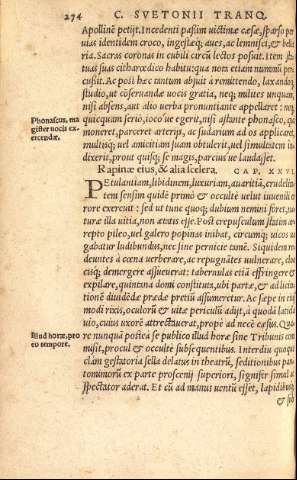 274 C. SVETONII TRANQ.
Apollinē petijt. Incedenti paſsim victimæ cæſæ, ſparſo per
vias identidem croco, ingeſtæq; aues, ac lemniſci, & bella
ria. Sacras coronas in cubili circū lectos poſuit. Item ſta
tuas ſuas citharœdico habitu: qua nota etiam nummū per
cuſſit. Ac poſt hæc tantum abfuit à remittendo, laxandoq;
ſtudio, ut cōſeruandæ uocis gratia, neq; milites unquam,
niſi abſens, aut alio verba pronuntiante appellaret: neq;
Phonaſcus, ma
quicquam ſerio, iocó ue egerit, niſi aſtante phonaſco, qui
giſter uocis ex-
moneret, parceret arterijs, ac ſudarium ad os applicaret:
ercendæ.
multisq; uel amicitiam ſuam obtulerit, uel ſimultatem in
dixerit, prout quiſq; ſe magis, parcius ue laudaſſet.
Rapinæ eius, & alia ſcelera. CAP. XXVI.
PEtulantiam, libidinem, luxuriam, auaritiā, crudelita
tem ſenſim quidē primò & occultè uelut iuuenili er
rore exercuit: ſed ut tunc quoq; dubium nemini foret, na
turæ illa uitia, non ætatis eſſe. Poſt crepuſculum ſtatim ar
repto pileo, uel galero popinas inibat, circumq; uicos ua
gabatur ludibundus, nec ſine pernicie tamē. Siquidem re
deuntes à cœna verberare, ac repugnātes vulnerare, cloa
cisq; demergere aſſueuerat: tabernulas etiā effringere &
expilare, quintana domi conſtituta, ubi partæ, & ad licita
tionē diuidēdæ prædæ pretiū aſſumeretur. Ac ſæpe in eius
modi rixis, oculorū & vitæ periculū adijt, à quodā laticla
uio, cuius uxorē attrectauerat, propè ad necē cæſus. Qua
Illud horæ, pro
re nunquā poſtea ſe publico illud horæ ſine Tribunis com
eo tempore.
miſit, procul & occultè ſubſequentibus. Interdiu quoque
clam geſtatoria ſella delatus in theatrū, ſeditionibus pan
tomimorū ex parte proſcenij ſuperiori, ſignifer ſimul ac
ſpectator aderat. Et cū ad manus uentū eſſet, lapidibusq;
& ſub